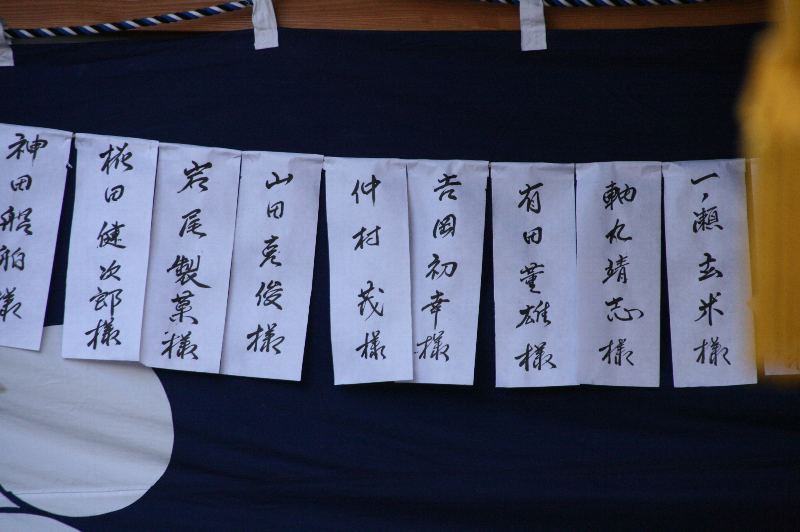 一ノ瀬玄米様
軸丸靖志様
有田董雄様
吉岡初幸様
仲村茂様
山田克俊様
岩尾製菓様
椛田健次郎様
神田船舶様